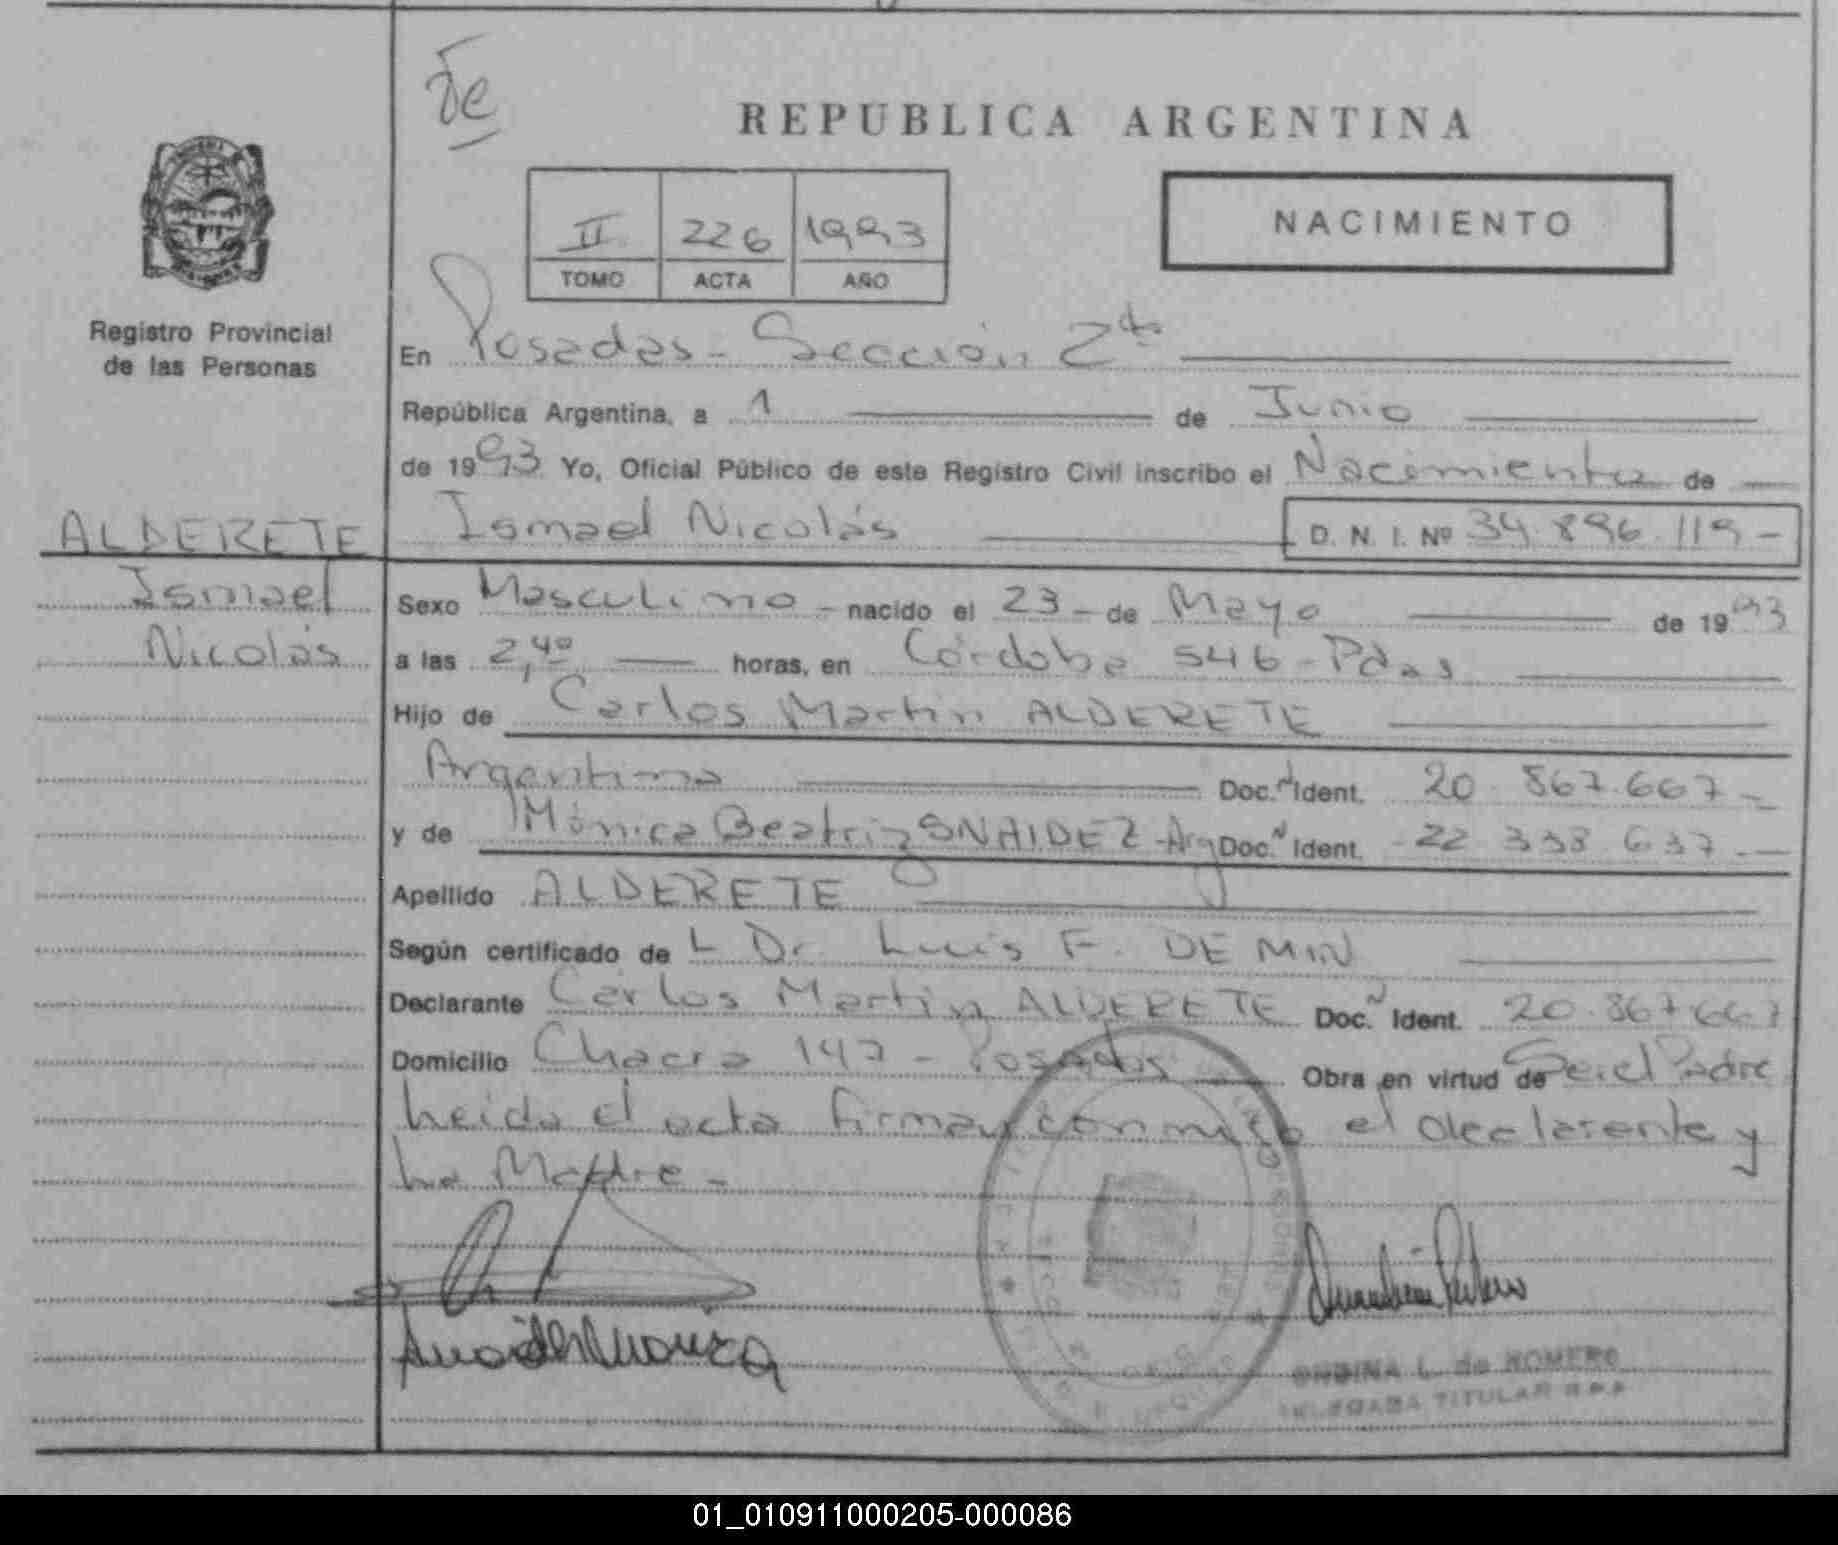 de
REPUBLICA ARGENTINA
II 226 1993
TOMO ACTA AÑO
NACIMIENTO
Registro Provincial
de las Personas
En Posadas - Sección 2da
República Argentina, a 1 de Junio
de 1993 Yo, Oficial Público de este Registro Civil inscribo el Nacimiento de
ALDERETE Ismael Nicolás D. N. I. Nº 34.896.119 -
Ismael Sexo Masculino - nacido el 23 - de Mayo de 1993
Nicolás a las 2,40 horas, en Córdoba 546 - Pdas
Hijo de Carlos Martín ALDERETE
Argentino Doc. N Ident. 20.867.667 -
y de Mónica Beatriz SNAIDEZ - Arg Doc. N Ident. 22 338 637 -
Apellido ALDERETE
Según certificado de L Dr. Luis F. DE MIN
Declarante Carlos Martín ALDERETE Doc. N Ident. 20.867.667
Domicilio Chacra 147 - Posadas Obra en virtud de Ser el Padre
Leida el acta firman conmigo el declarante y
la Madre -
ONDINA L. de ROMERO
DELEGADA TITULAR R.P.P.
01_010911000205-000086